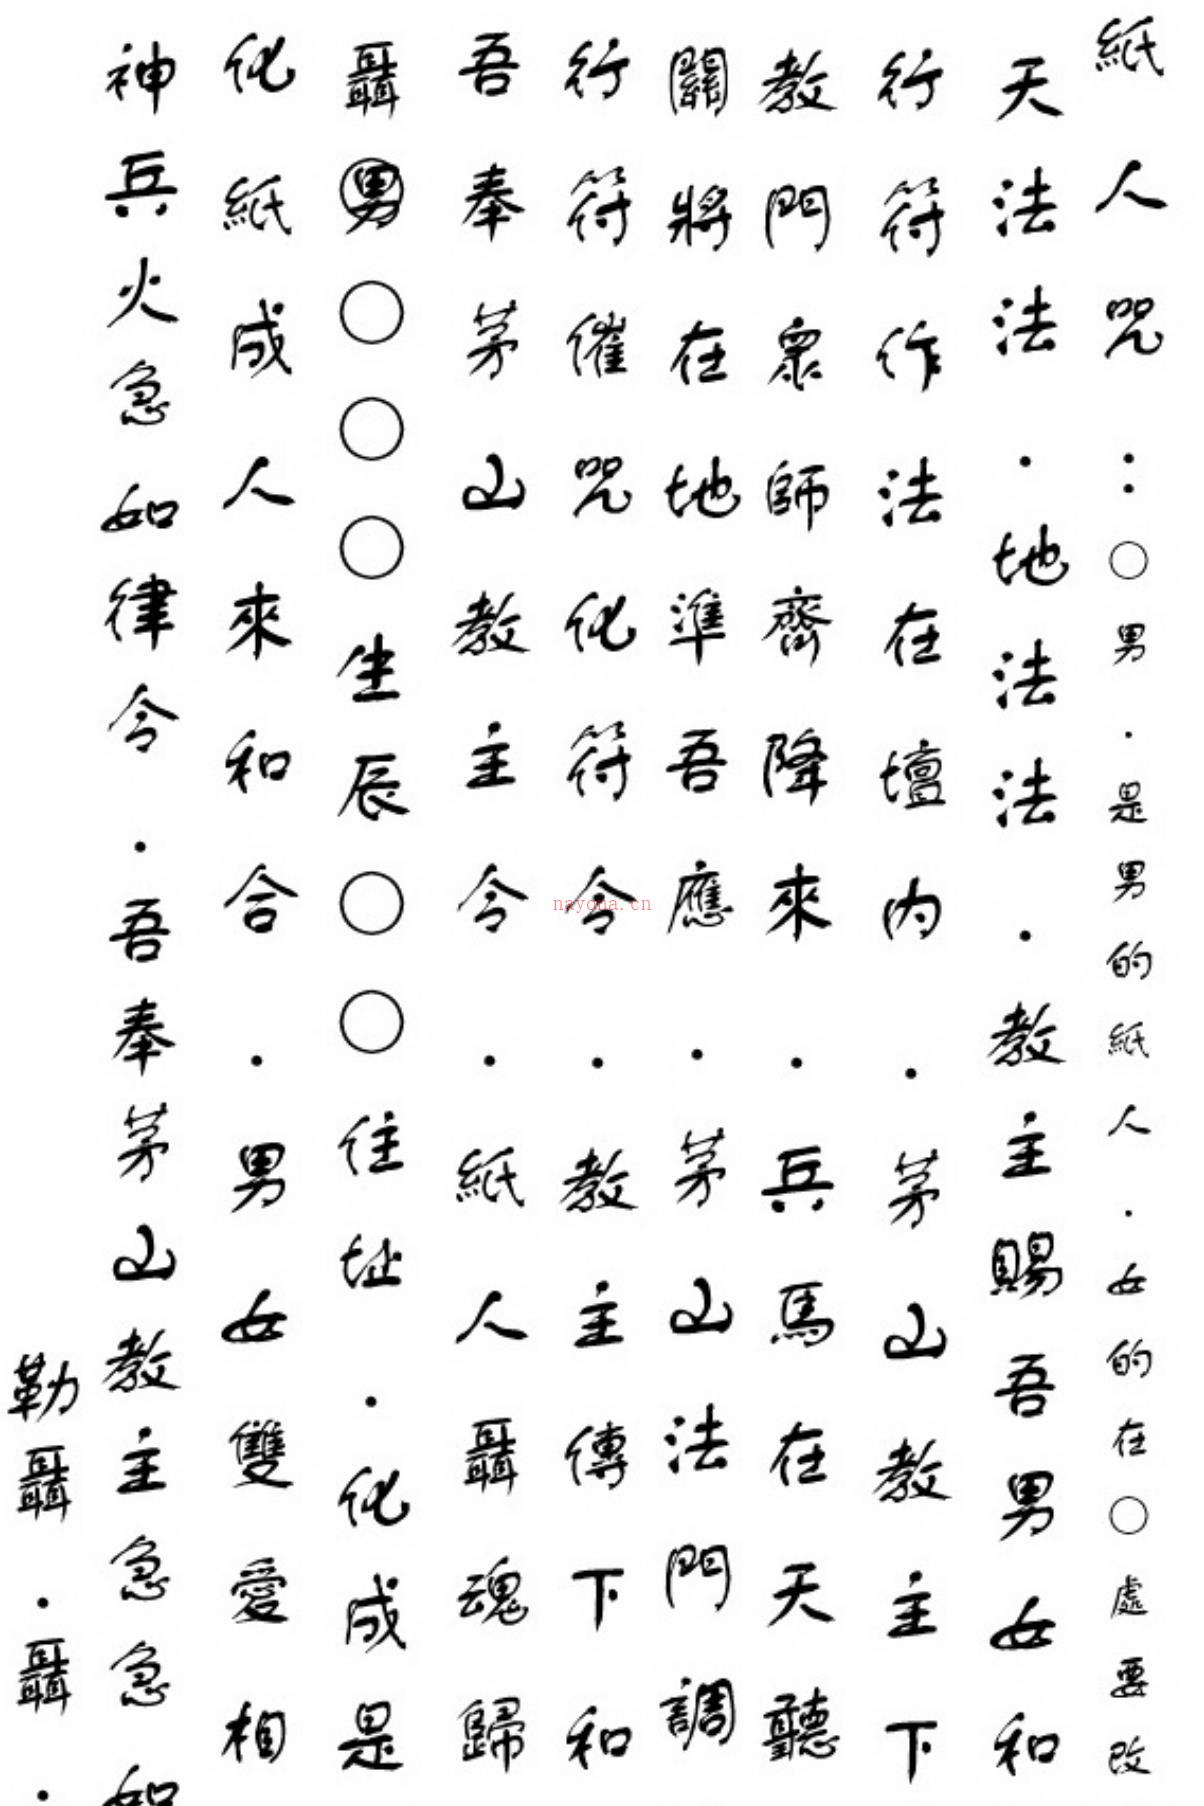 紙人咒：○男．是男的紙人．女的在○處要改
天法法．地法法．教主賜吾男女和
行符作法在壇內．茅山教主下
教門眾師齊降來．兵馬在天聽
關將在地準吾應．茅山法門調
行符催咒化符令．教主傳下和
吾奉茅山教主令．紙人聶魂歸
聶男○○○生辰○○住址．化成是
化紙成人來和合．男女雙愛相
神兵火急如律令．吾奉茅山教主急急如
勒聶．聶．
nayona.cn